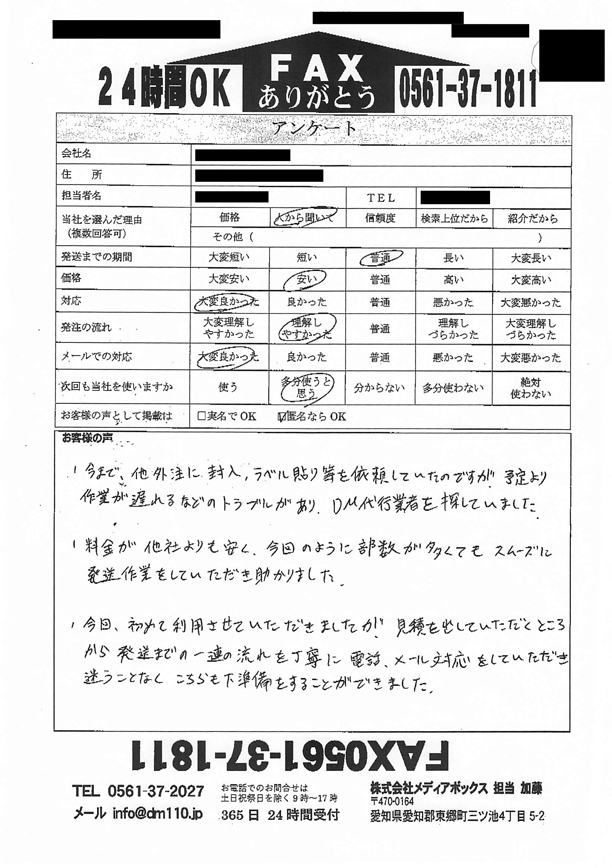 24時間OK
FAX
ありがとう
0561-37-1811
アンケート
会社名
住 所
担当者名 TEL
当社を選んだ理由 価格 人から聞いて 信頼度 検索上位だから 紹介だから
(複数回答可) その他 ( )
発送までの期間 大変短い 短い 普通 長い 大変長い
価格 大変安い 安い 普通 高い 大変高い
対応 大変良かった 良かった 普通 悪かった 大変悪かった
発注の流れ 大変理解しやすかった 理解しやすかった 普通 理解しづらかった 大変理解しづらかった
メールでの対応 大変良かった 良かった 普通 悪かった 大変悪かった
次回も当社を使いますか 使う 多分使うと思う 分からない 多分使わない 絶対使わない
お客様の声として掲載は □実名でOK ☑匿名ならOK
お客様の声
今まで、他外注に封入,ラベル貼り等を依頼していたのですが 予定より
作業が遅れるなどのトラブルがあり、DM代行業者を探していました。
料金が他社よりも安く、今回のように部数が多くても スムーズに
発送作業をしていただき助かりました.
今回、初めて利用させていただきましたが 見積を出していただくところ
から 発送までの一連の流れを丁寧に 電話、メール対応をしていただき
迷うことなく こちらも下準備をすることができました.
FAX0561-37-1811
TEL 0561-37-2027
メール info@dm110.jp
お電話でのお問合せは
土日祝祭日を除く9時~17時
365日24時間受付
株式会社メディアボックス 担当 加藤
〒470-0164
愛知県愛知郡東郷町三ツ池4丁目5-2